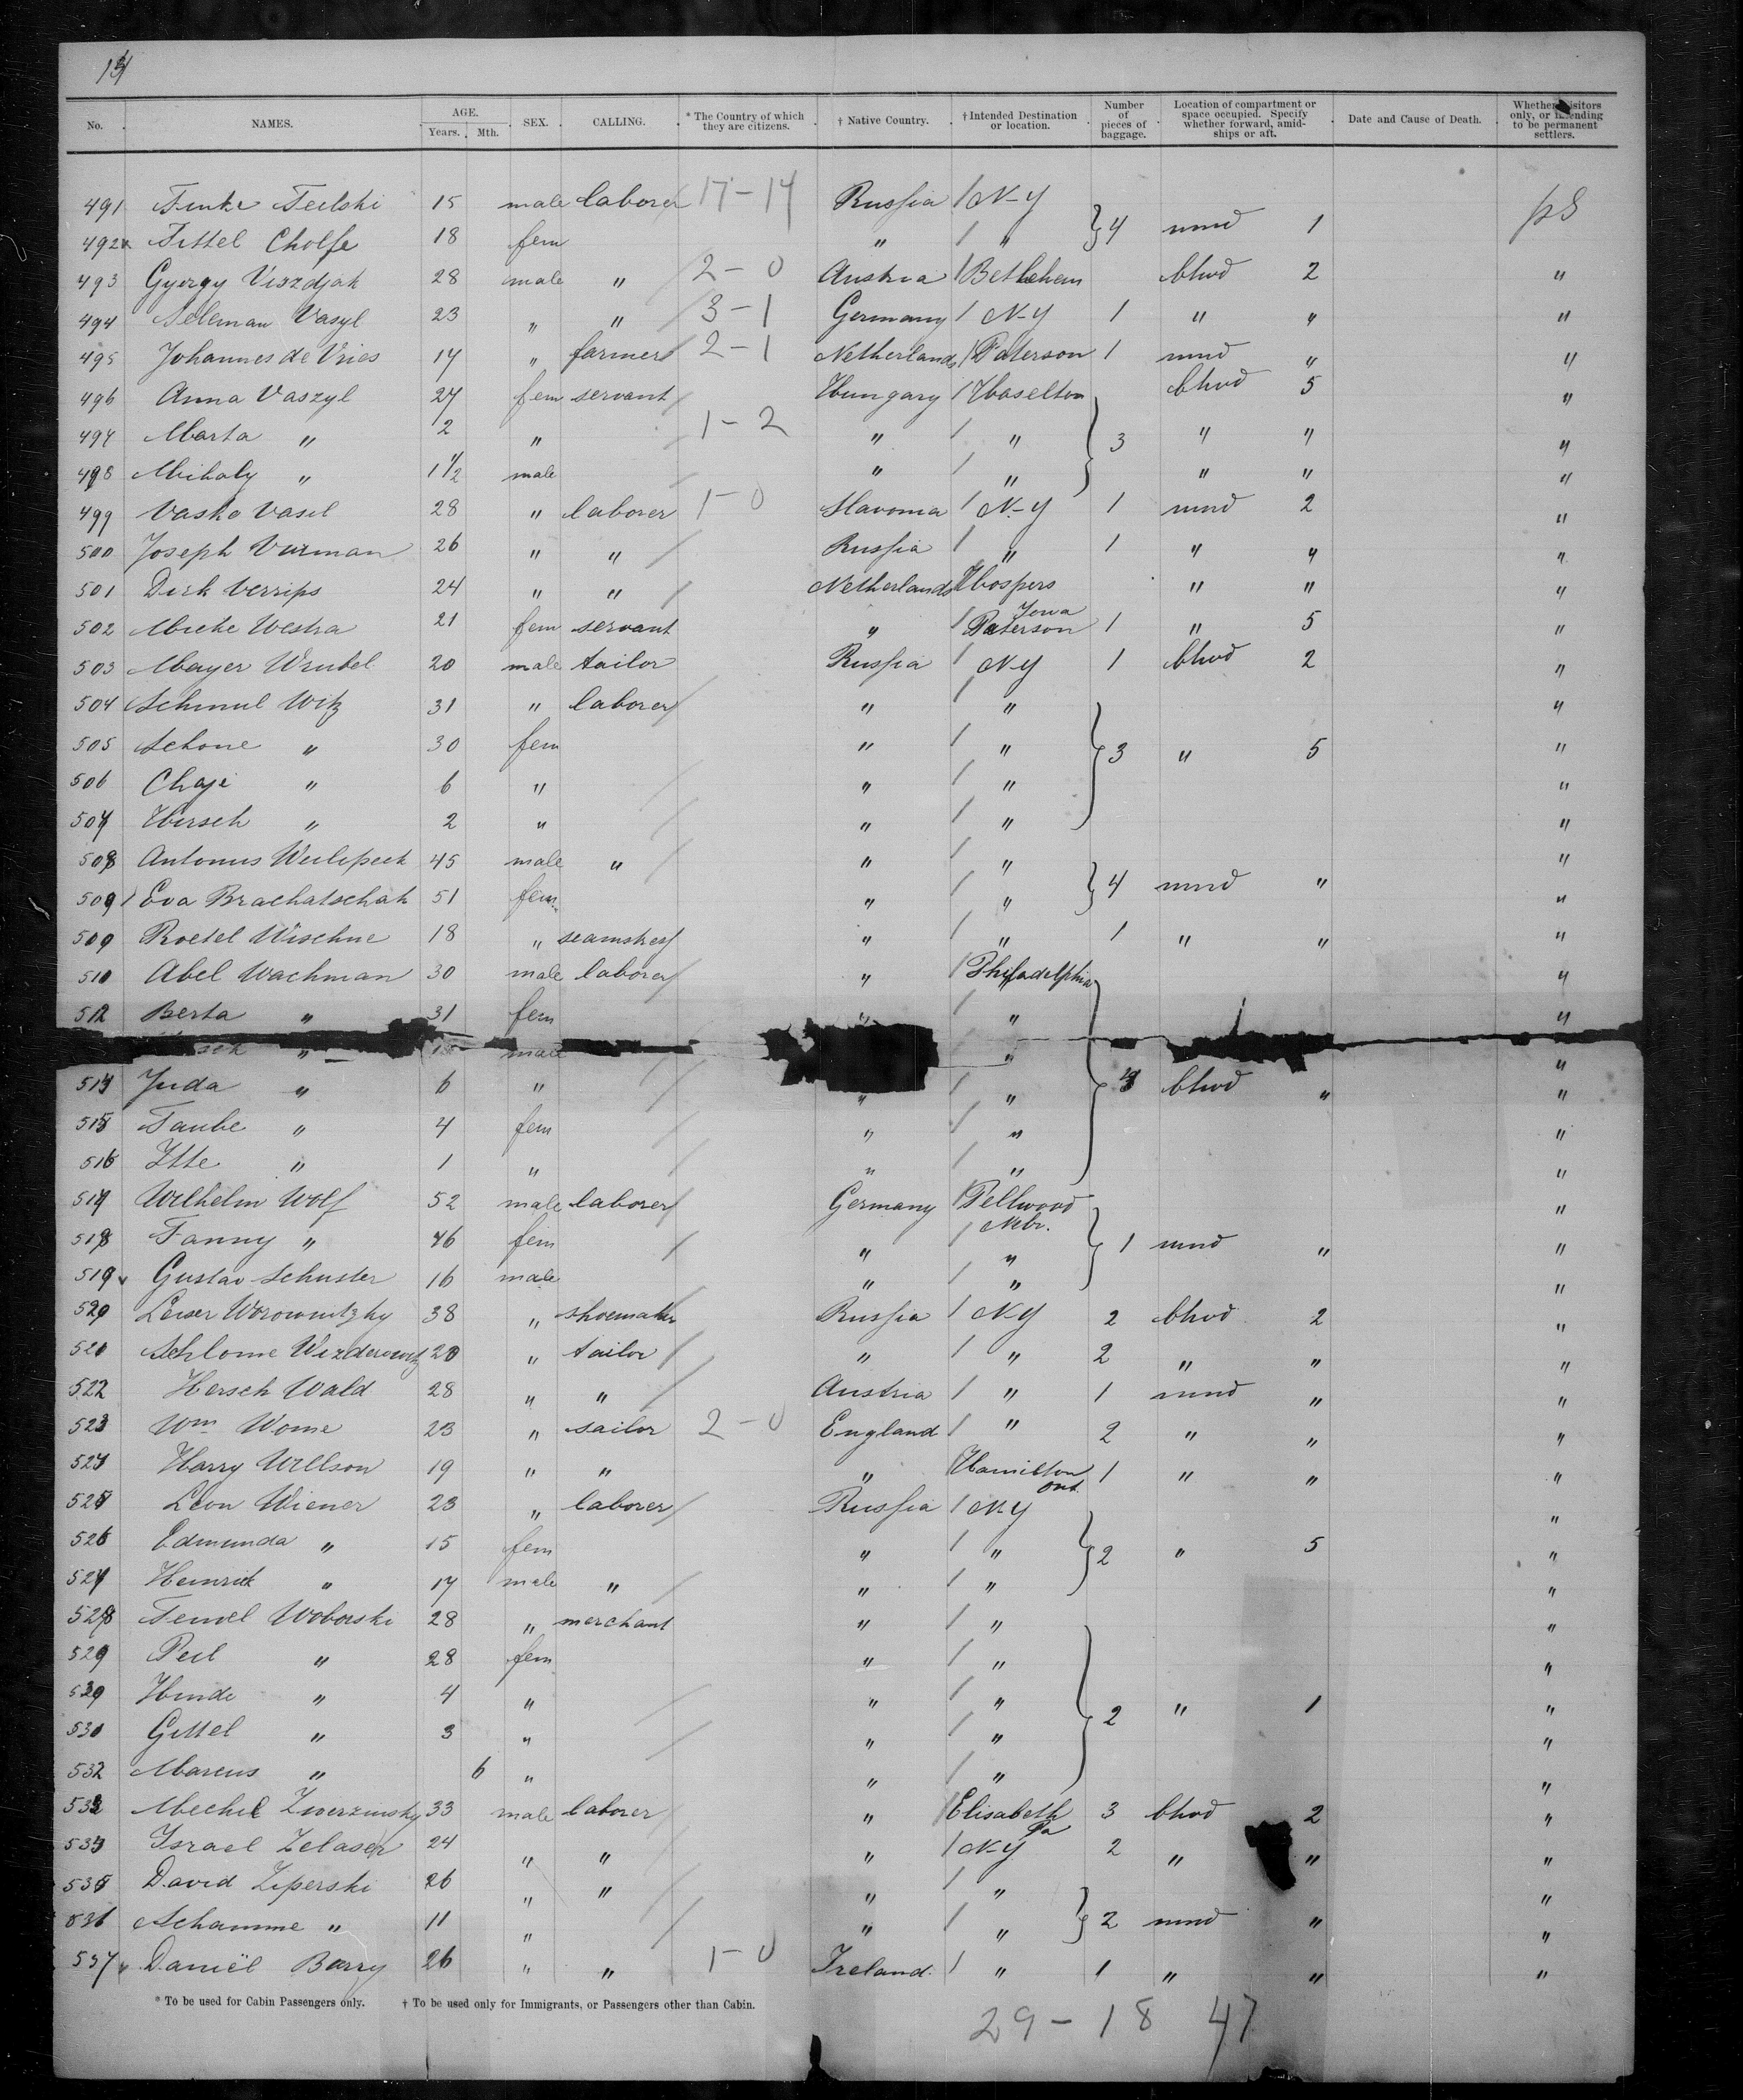 14
No. NAMES. AGE. Years. Mth. SEX. CALLING. * The Country of which they are citizens. † Native Country. † Intended Destination or location. Number of pieces of baggage. Location of compartment or space occupied. Specify whether forward, amidships or aft. Date and Cause of Death. Whether visitors only, or intending to be permanent settlers.
491 15 male laborer 17-14 Russia / N-Y pS
492 Fittel Cholfe 18 fem " / " } 4 mmd 1
493 Gyorgy Viszdjak 28 male " / 2-0 Austria / Bethlehem bhwd 2 "
494 Seleman Vasyl 23 " " / 3-1 Germany / N-Y 1 " " "
495 Johannes de Vries 17 " farmer / 2-1 Netherlands / Paterson 1 mmd " "
496 Anna Vaszyl 27 fem servant / Hungary / Haselton bhwd 5 "
497 Marta " 2 " / 1-2 " / " } 3 " " "
498 Mihaly " 1 1/2 male / " / " " " "
499 Vasko Vasil 28 " laborer 1-0 Slavonia / N-Y 1 mmd 2 "
500 Joseph Vurman 26 " " / Russia / " 1 " " "
501 Dirk Verrips 24 " " / Netherlands / Hospers Iowa " " "
502 Mieke Westra 21 fem servant " / Paterson 1 " 5 "
503 Mayer Wrubel 20 male tailor Russia / N-Y 1 bhwd 2 "
504 Schmul Witz 31 " laborer / " / " "
505 Schone " 30 fem " / " } 3 " 5 "
506 Chaje " 6 " / " / " "
507 Hersch " 2 " / " / " "
508 Antonus 45 male " / " / " "
509 Eva Brachatschak 51 fem " / " } 4 mmd " "
509 Roetel Wischne 18 " seamstress / " / " 1 " " "
510 Abel Wachman 30 male laborer / " / Philadelphia "
512 Berta " 31 fem " / " "
" male " "
514 Juda " 6 " / " / " } bhwd " "
515 Taube " 4 fem / " / " "
516 Itte " 1 " / " / " "
517 Wilhelm Wolf 52 male laborer / Germany / Bellwood Nebr. "
518 Fanny " 46 fem / " / " } 1 mmd " "
519 Gustav Schuster 16 male " / " "
520 Leiser Worownitzky 38 " shoemaker Russia / N-Y 2 bhwd 2 "
521 Schlome Wizderowitz 20 " tailor / " / " 2 " " "
522 Hersch Wald 28 " " / Austria / " 1 mmd " "
523 Wm Wome 23 " sailor 2-0 England / " 2 " " "
524 Harry Willson 19 " " " Hamilton Ont. 1 " " "
525 Leon Wiener 23 " laborer / Russia / N-Y "
526 Edmunda " 15 fem " / " } 2 " 5 "
527 Heinrich " 17 male " / " / " "
528 Woborski 28 " merchant " / " "
529 Peil " 28 fem " / " "
529 Hinde " 4 " / " / " } 2 " 1 "
530 Gittel " 3 " / " / " "
532 Marcus " 6 " " / " "
533 Mechel Zwerzinsky 33 male laborer " / Elisabeth Pa 3 bhwd 2 "
534 Israel Zelaser 24 " " " / N-Y 2 " " "
535 David Ziperski 26 " " / " / " "
536 Schamme " 11 " / " / " } 2 mmd " "
537 Daniël Barry 26 " " 1-0 Ireland. / " 1 " " "
* To be used for Cabin Passengers only. † To be used only for Immigrants, or Passengers other than Cabin.
29-18 47